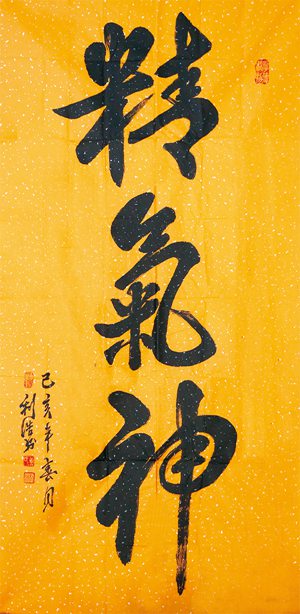 精氣神
己亥年春月
利浩书